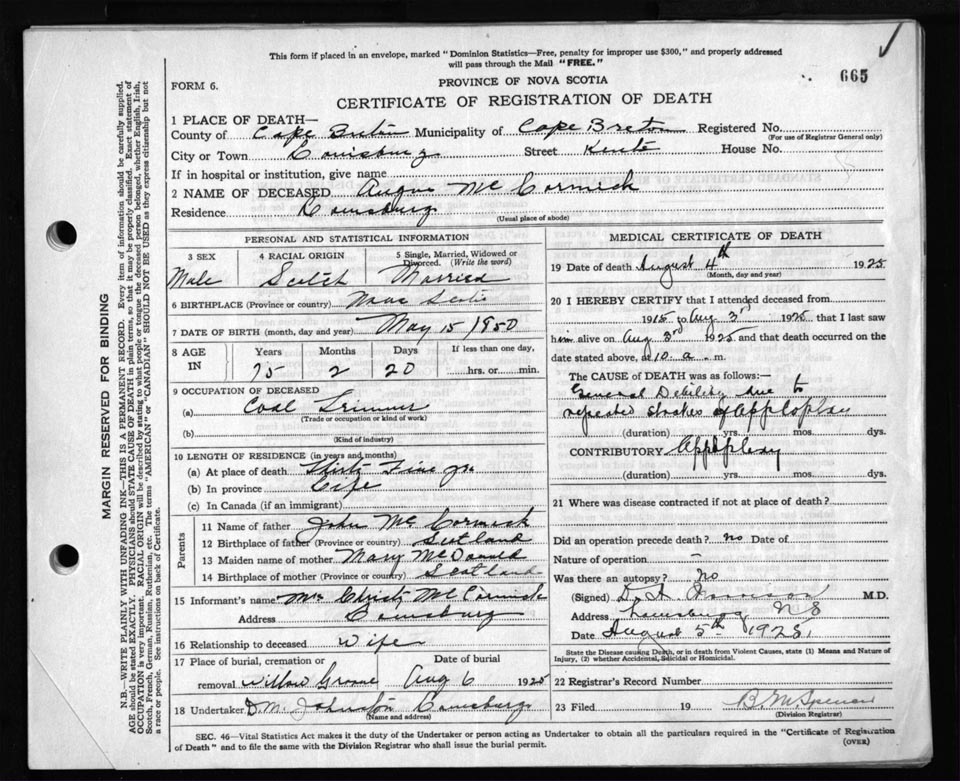 This form if placed in an envelope, marked "Dominion Statistics—Free, penalty for improper use $300," and properly addressed
will pass through the Mail "FREE."
665
FORM 6.
PROVINCE OF NOVA SCOTIA
CERTIFICATE OF REGISTRATION OF DEATH
1 PLACE OF DEATH—
County of Cape Breton Municipality of Cape Breton Registered No.
(For use of Registrar General only)
City or Town Louisburg Street Kent House No.
If in hospital or institution, give name
2 NAME OF DECEASED Angus McCormick
Residence Louisburg
(Usual place of abode)
PERSONAL AND STATISTICAL INFORMATION
3 SEX 4 RACIAL ORIGIN 5 Single, Married, Widowed or
Divorced. (Write the word)
Male Scotch Married
6 BIRTHPLACE (Province or country) Nova Scotia
7 DATE OF BIRTH (month, day and year) May 15 1850
8 AGE IN Years Months Days If less than one day,
75 2 20 hrs. or min.
9 OCCUPATION OF DECEASED
(a) Coal Trimmer
(Trade of occupation or kind of work)
(b)
(Kind of industry)
10 LENGTH OF RESIDENCE (in years and months)
(a) At place of death Thirty Five yrs
(b) In province Life
(c) In Canada (if an immigrant)
Parents
11 Name of father John McCormick
12 Birthplace of father (Province or country) Scotland
13 Maiden name of mother Mary McDonald
14 Birthplace of mother (Province or country) Scotland
15 Informant's name Mrs Christy McCormick
Address Louisburg
16 Relationship to deceased Wife
17 Place of burial, cremation or Date of burial
removal Willow Grove Aug 6 1925
18 Undertaker D. M. Johnston Louisburg
(Name and address)
MEDICAL CERTIFICATE OF DEATH
19 Date of death August 4th 1925
(Month, day and year)
20 I HEREBY CERTIFY that I attended deceased from
1915 to Aug 3rd 1925 that I last saw
him alive on Aug 3rd 1925 and that death occurred on the
date stated above, at 10 a m.
The CAUSE of DEATH was as follows:—
General Debility due to
repeated strokes of
(duration) yrs. mos. dys.
CONTRIBUTORY
(duration) yrs. mos. dys.
21 Where was disease contracted if not at place of death?
Did an operation precede death? no Date of
Nature of operation —
Was there an autopsy? no
(Signed) M.D.
Address Louisburg N S
Date August 5th 1925.
State the Disease causing Death, or in death from Violent Causes, state (1) Means and Nature of
Injury, (2) whether Accidental, Suicidal or Homicidal.
22 Registrar's Record Number
23 Filed 19 B. M. Spencer
(Division Registrar)
SEC. 46—Vital Statistics Act makes it the duty of the Undertaker or person acting as Undertaker to obtain all the particulars required in the "Certificate of Registration
of Death" and to file the same with the Division Registrar who shall issue the burial permit. (OVER)
MARGIN RESERVED FOR BINDING
N.B.—WRITE PLAINLY WITH UNFADING INK—THIS IS A PERMANENT RECORD. Every item of information should be carefully supplied.
AGE should be stated EXACTLY. PHYSICIANS should STATE CAUSE OF DEATH in plain terms, so that it may be properly classified. Exact statement of
OCCUPATION is very important. RACIAL ORIGIN will be described by stating to what people or tongue the deceased person belonged, whether English, Irish,
Scotch, French, German, Russian, Ruthenian, etc. The terms "AMERICAN" or "CANADIAN" SHOULD NOT BE USED as they express citizenship but not
a race or people. See instructions on back of Certificate.